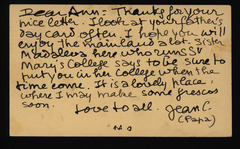 Dear Ann:- Thanks for your
nice letter. I look at your father's
day card often. I hope you will
enjoy the mainland a lot. Sister
Madaleva here who runs St
Mary's College says to be sure to
put you in her College when the
time come. It is a lovely place,
where I may make some frescos
soon.
Love to all. Jean C.
(Papa)